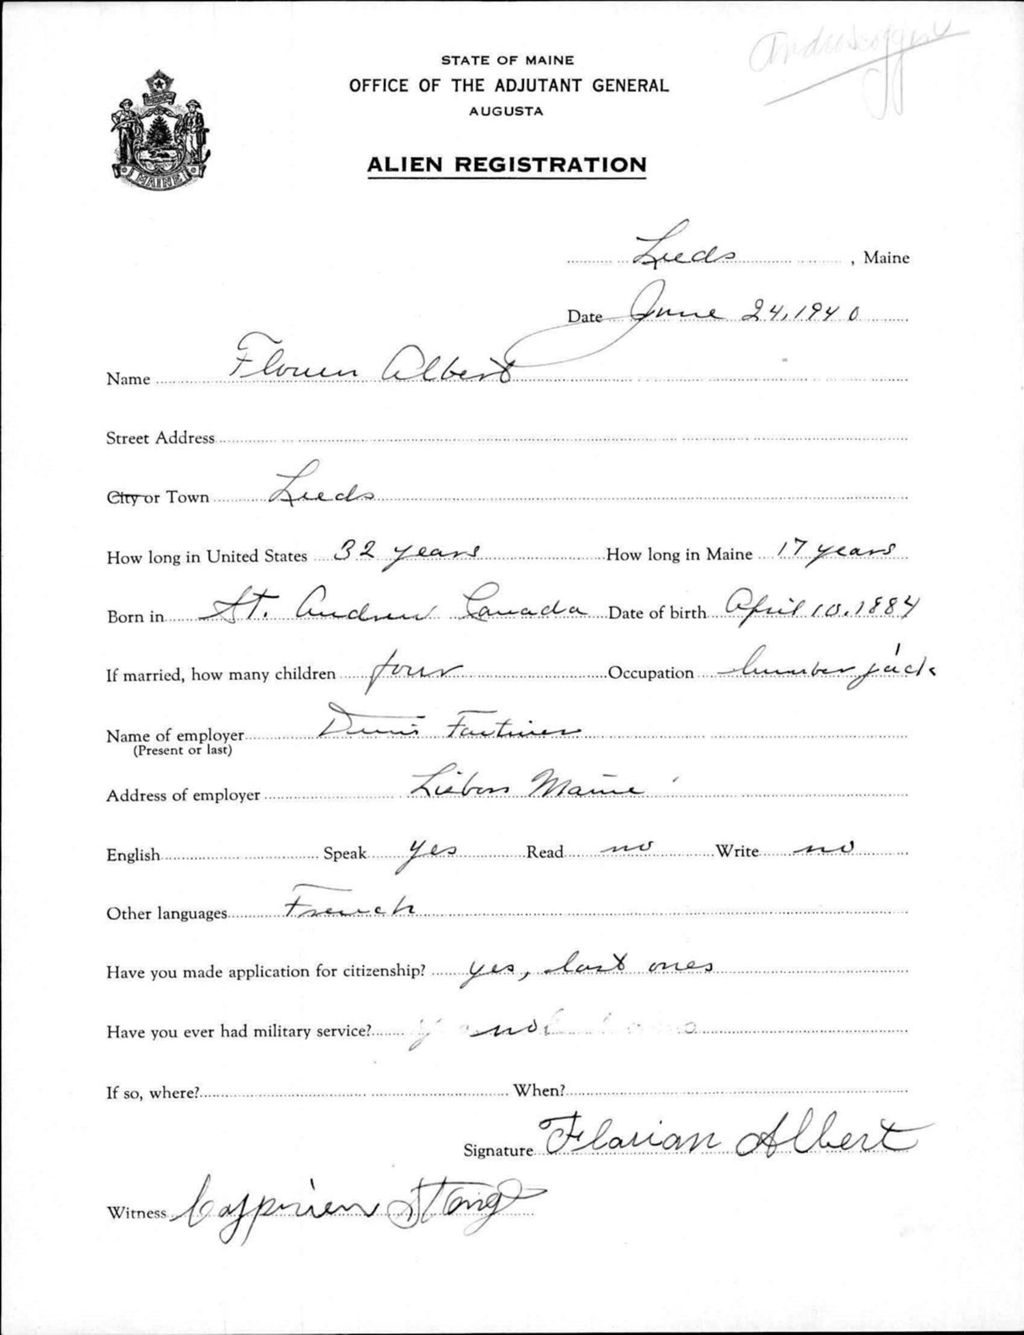 Androscoggin
STATE OF MAINE
OFFICE OF THE ADJUTANT GENERAL
AUGUSTA
ALIEN REGISTRATION
MAINE
Leeds, Maine
Date June 24, 1940
Name Albert
Street Address
City or Town Leeds
How long in United States 32 years How long in Maine 17 years
Born in St. Andrew Canada Date of birth April 10, 1884
If married, how many children four Occupation lumber jack
Name of employer
(Present or last)
Address of employer Lisbon Maine
English Speak yes Read no Write no
Other languages French
Have you made application for citizenship? yes, last ones
Have you ever had military service? no
If so, where? When?
Signature Florian Albert
Witness